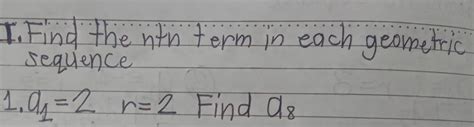 I. Find the nth term in each geometric
sequence
1. a₁=2 r=2 Find a₈